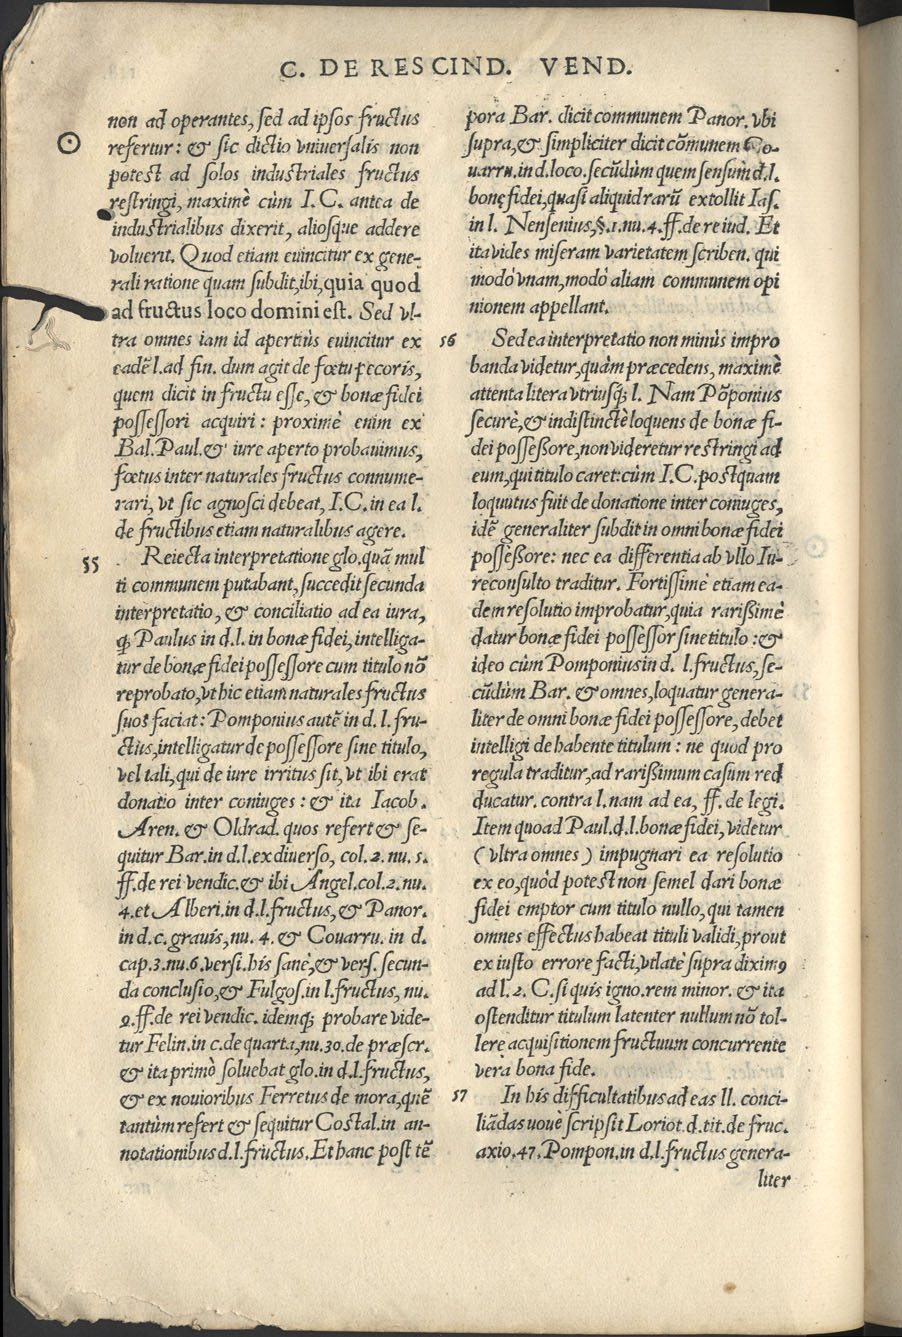 C. DE RESCIND. VEND.
non ad operantes, sed ad ipsos fructus
refertur: & sic dictio vniuersalis non
potest ad solos industriales fructus
restringi, maximè cùm I.C. antea de
industrialibus dixerit, aliosque addere
voluerit. Quod etiam euincitur ex gene-
rali ratione quam subdit, ibi, quia quod
ad fructus loco domini est. Sed vl-
tra omnes iam id apertiùs euincitur ex
eadẽ l. ad fin. dum agit de fœtu pecoris,
quem dicit in fructu esse, & bonæ fidei
possessori acquiri: proximè enim ex
Bal. Paul. & iure aperto probauimus,
fœtus inter naturales fructus connume-
rari, vt sic agnosci debeat, I.C. in ea l.
de fructibus etiam naturalibus agere.
55 Reiecta interpretatione glo. quã mul
ti communem putabant, succedit secunda
interpretatio, & conciliatio ad ea iura,
q; Paulus in d. l. in bonæ fidei, intelliga-
tur de bonæ fidei possessore cum titulo nõ
reprobato, vt hic etiam naturales fructus
suos faciat: Pomponius autẽ in d. l. fru-
ctus, intelligatur de possessore sine titulo,
vel tali, qui de iure irritus sit, vt ibi erat
donatio inter coniuges: & ita Iacob.
Aren. & Oldrad. quos refert & se-
quitur Bar. in d. l. ex diuerso, col. 2. nu. 5.
ff. de rei vendic. & ibi Angel. col. 2. nu.
4. et Alberi. in d. l. fructus, & Panor.
in d. c. grauis, nu. 4. & Couarru. in d.
cap. 3. nu. 6. versi. his sanè, & vers. secun-
da conclusio, & Fulgos. in l. fructus, nu.
2. ff. de rei vendic. idemq; probare vide-
tur Felin. in c. de quarta, nu. 30. de præscr.
& ita primò soluebat glo. in d. l. fructus,
& ex nouioribus Ferretus de mora, quẽ
tantùm refert & sequitur Costal. in an-
notationibus d. l. fructus. Et hanc post tẽ
pora Bar. dicit communem Panor. vbi
supra, & simpliciter dicit cõmunem Co-
uarru. in d. loco. secũdùm quem sensum d. l.
bonę fidei, quasi aliquid rarũ extollit Ias.
in l. Nensenius, §. 1. nu. 4. ff. de re iud. Et
ita vides miseram varietatem scriben. qui
modò vnam, modò aliam communem opi
nionem appellant.
56 Sed ea interpretatio non minùs impro
banda videtur, quàm præcedens, maximè
attenta litera vtriusq; l. Nam Põponius
securè, & indistinctè loquens de bonæ fi-
dei possessore, non videretur restringi ad
eum, qui titulo caret: cùm I.C. postquam
loquutus fuit de donatione inter coniuges,
idẽ generaliter subdit in omni bonæ fidei
possessore: nec ea differentia ab vllo Iu-
reconsulto traditur. Fortissimè etiam ea-
dem resolutio improbatur, quia rarissimè
datur bonæ fidei possessor sine titulo: &
ideo cùm Pomponius in d. l. fructus, se-
cũdùm Bar. & omnes, loquatur genera-
liter de omni bonæ fidei possessore, debet
intelligi de habente titulum: ne quod pro
regula traditur, ad rarissimum casum red
ducatur. contra l. nam ad ea, ff. de legi.
Item quoad Paul. d. l. bonæ fidei, videtur
(vltra omnes) impugnari ea resolutio
ex eo, quòd potest non semel dari bonæ
fidei emptor cum titulo nullo, qui tamen
omnes effectus habeat tituli validi, prout
ex iusto errore facti, vt latè supra diximꝰ
ad l. 2. C. si quis igno. rem minor. & ita
ostenditur titulum latenter nullum nõ tol-
lere acquisitionem fructuum concurrente
vera bona fide.
57 In his difficultatibus ad eas ll. conci-
liãdas nouè scripsit Loriot. d. tit. de fruc.
axio. 47. Pompon. in d. l. fructus genera-
liter